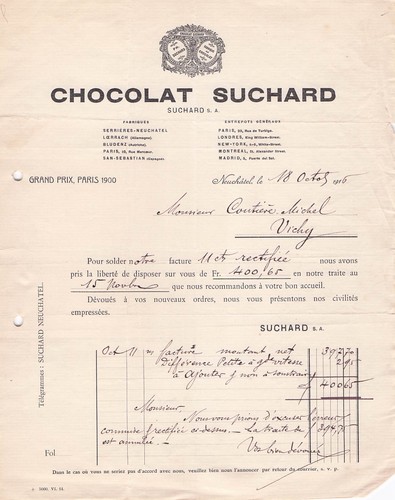 CHOCOLAT SUCHARD
SUCHARD S. A.
FABRIQUES
SERRIÈRES-NEUCHATEL
LŒRRACH (Allemagne)
BLUDENZ (Autriche)
PARIS,
SAN-SEBASTIAN (Espagne)
ENTREPÔTS GÉNÉRAUX
PARIS, 20, Rue de Turbigo.
LONDRES, King William-Street.
NEW-YORK, White-Street.
MONTREAL, St. Alexander Street.
MADRID, Puerta del Sol.
GRAND PRIX, PARIS 1900
Neuchâtel le 18 Octob
Monsieur Coutière Michel
Vichy
Pour solder notre facture 11 ct rectifiée nous avons
pris la liberté de disposer sur vous de Fr. 400,65 en notre traite au
15 Novbre que nous recommandons à votre bon accueil.
Dévoués à vos nouveaux ordres, nous vous présentons nos civilités
empressées.
SUCHARD S. A.
Télégrammes: SUCHARD NEUCHATEL
Oct 11 n/ facture montant net 397.70
différence Petite à gde vitesse 2.95
à ajouter & non à soustraire
f 400 65
Monsieur,
Nous vous prions d'excuser l'erreur
commise & rectifiée ci-dessus. - La traite de f 394.75
est annulée. - Vos bien dévoués
Fol
Dans le cas où vous ne seriez pas d'accord avec nous, veuillez bien nous l'annoncer par retour du courrier, s. v. p.